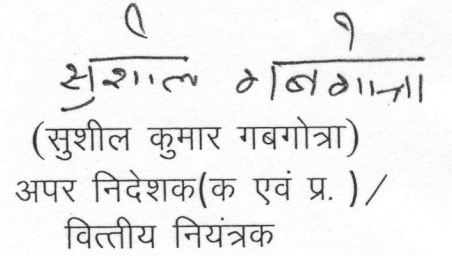 सुशील गबगोत्रा
(सुशील कुमार गबगोत्रा)
अपर निदेशक(क एवं प्र. )/
वित्तीय नियंत्रक